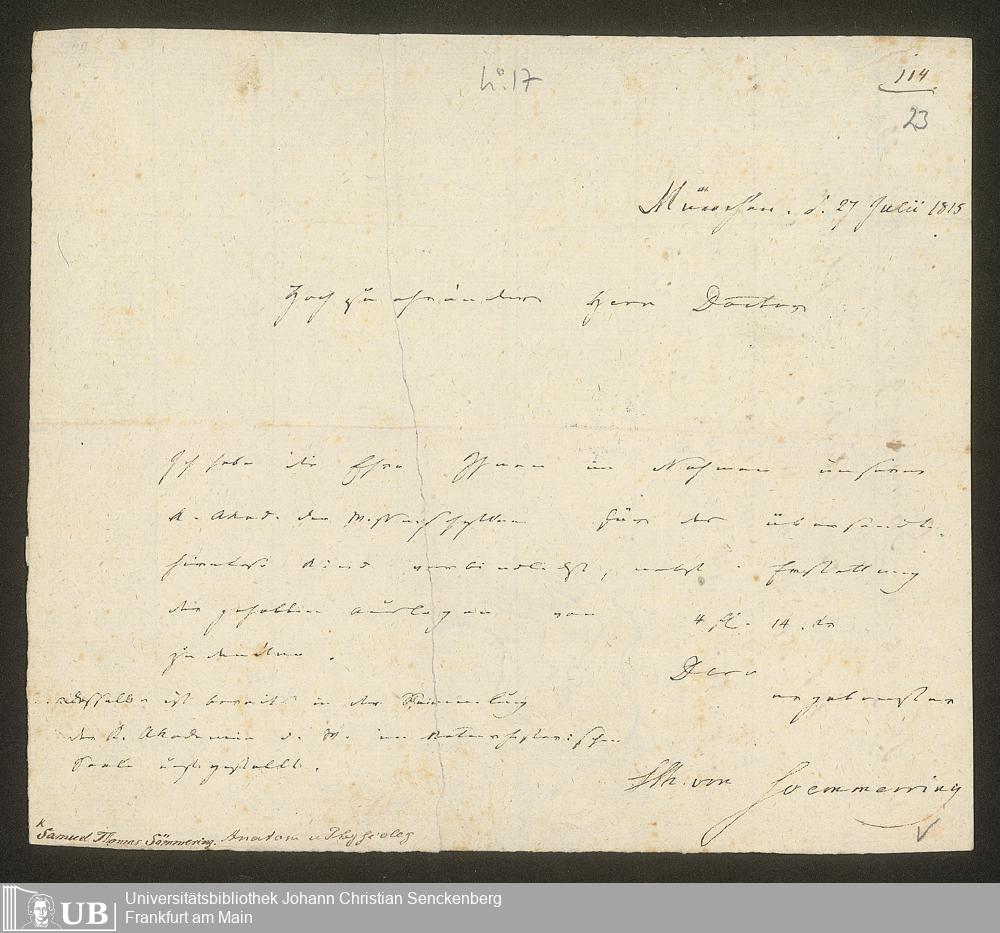 114
23
München. d. 27 Julii 1815
Hoch zu ehrender Herr Doctor
Ich habe die Ehre Ihnen im Nahmen unserer
K. Akad. der Wissenschaften für das übersandte
hirnlose Kind verbindlichst, nebst Erstattung
die gehabten Auslagen von 4 fl. 14. kr
zu danken.
Dero
ergebenster
Dasselbe ist bereits in der Sammlung
der K. Akademie d. W. im Naturhistorischen
Saale aufgestellt.
STh. von Soemmerring
Samuel Thomas Sömmering. Anatom u Physiolog
UB Universitätsbibliothek Johann Christian Senckenberg
Frankfurt am Main